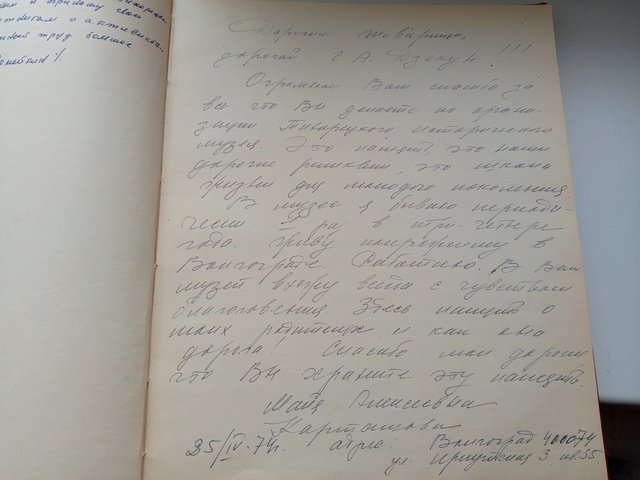 и
свои
и активнос
труд большое
Дорогие товарищи,
дорогой Г. А. Дзекун!!!
Огромное Вам спасибо за
все что Вы делаете по органи-
зации Тихорецкого исторического
музея. Это память, это наши
дорогие реликвии, это школа
жизни для молодого поколения
В музее я бываю периоди-
чески 1 раз в три-четыре
года. Живу по-прежнему в
Волгограде. Работаю. В Ваш
музей вхожу всегда с чувством
благоговения. Здесь память о
моих родителях и как она
дорога! Спасибо мои дорогие
что Вы храните эту память.
Майя Алексеевна
25/IV-74г. адрес: Волгоград 400074
ул. Иркутская 3 кв. 55.